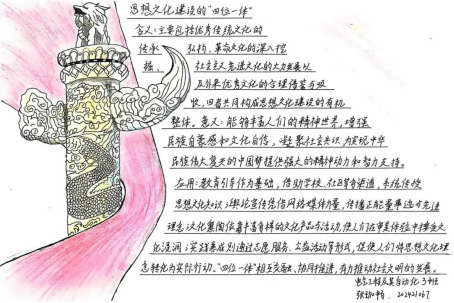 思想文化建设的"四位一体"
含义:主要包括优秀传统文化的
传承 弘扬、革命文化的深入挖
掘、 社会主义先进文化的大力发展以
及外来优秀文化的合理借鉴与吸
收,四者共同构成思想文化建设的有机
整体。意义:能够丰富人们的精神世界,增强
民族自豪感和文化自信,凝聚社会共识,为实现中华
民族伟大复兴的中国梦提供强大的精神动力和智力支持。
应用:教育引导作为基础,借助学校、社区等渠道,系统传授
思想文化知识;舆论宣传凭借网络媒体力量,传播正能量事迹与先进
理念;文化熏陶依靠丰富多样的文化产品和活动,使人们在审美体验中接受文
化浸润;实践养成则通过志愿服务、公益活动等形式,促使人们将思想文化理
念转化为实际行动。"四位一体"相互交融、协同推进,有力推动社会文明的发展。
电气工程及其自动化3班
202421067